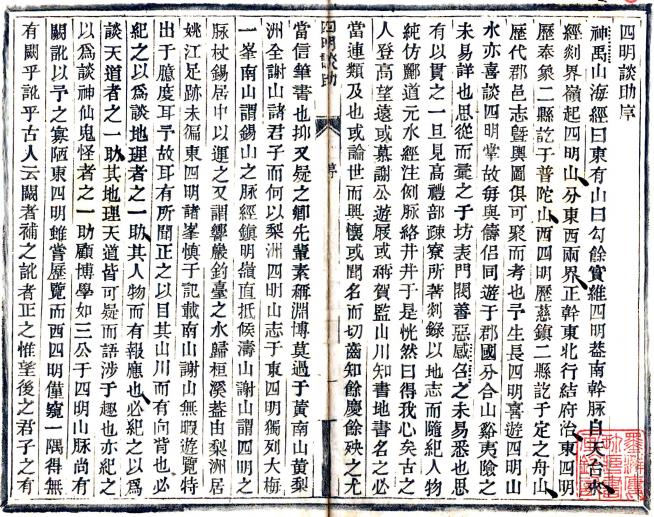 四明談助序
神禹山海經曰東有山曰勾餘實維四明葢南幹脉自天台來
經剡界嶺起四明山分東西兩界正幹東北行結府治東四明
歷奉象二縣訖于普陀山西四明歷慈鎮二縣訖于定之舟山
歷代郡邑志暨輿圖俱可聚而考也予生長四明喜遊四明山
水亦喜談四明掌故每與儔侶同遊于郡國分合山谿夷險之
未易詳也思從而彙之于坊表門閥善惡感召之未易悉也思
有以貫之一旦見高禮部疎寮所著剡錄以地志而隨紀人物
純仿酈道元水經注例脉絡井井于是恍然曰得我心矣古之
人登高望遠或慕謝公遊屐或稱賀監山川知書地書名之必
當連類及也或論世而興懷或聞名而切齒知餘慶餘殃之尤
四明談助 序 一
當信筆書也抑又疑之鄉先輩素稱淵博莫過于黃南山黃梨
洲全謝山諸君子而何以梨洲四明山志于東四明獨列大梅
一峯南山謂錫山之脉經鎮明嶺直抵候濤山謝山謂四明之
脉杖錫居中以運之又謂響巖釣臺之水歸桓溪葢由梨洲居
姚江足跡未徧東四明諸峯慎子記載南山謝山無暇遊覽特
出于臆度耳予故耳有所聞正之以目其山川而有向背也必
紀之以爲談地理者之一助其人物而有報應也必紀之以爲
談天道者之一助其地理天道皆可疑而語涉于趣也亦紀之
以爲談神仙鬼怪者之一助顧博學如三公于四明山脉尚有
闕訛以予之寡陋東四明雖嘗歷覽而西四明僅窺一隅得無
有闕乎訛乎古人云闕者補之訛者正之惟望後之君子之有